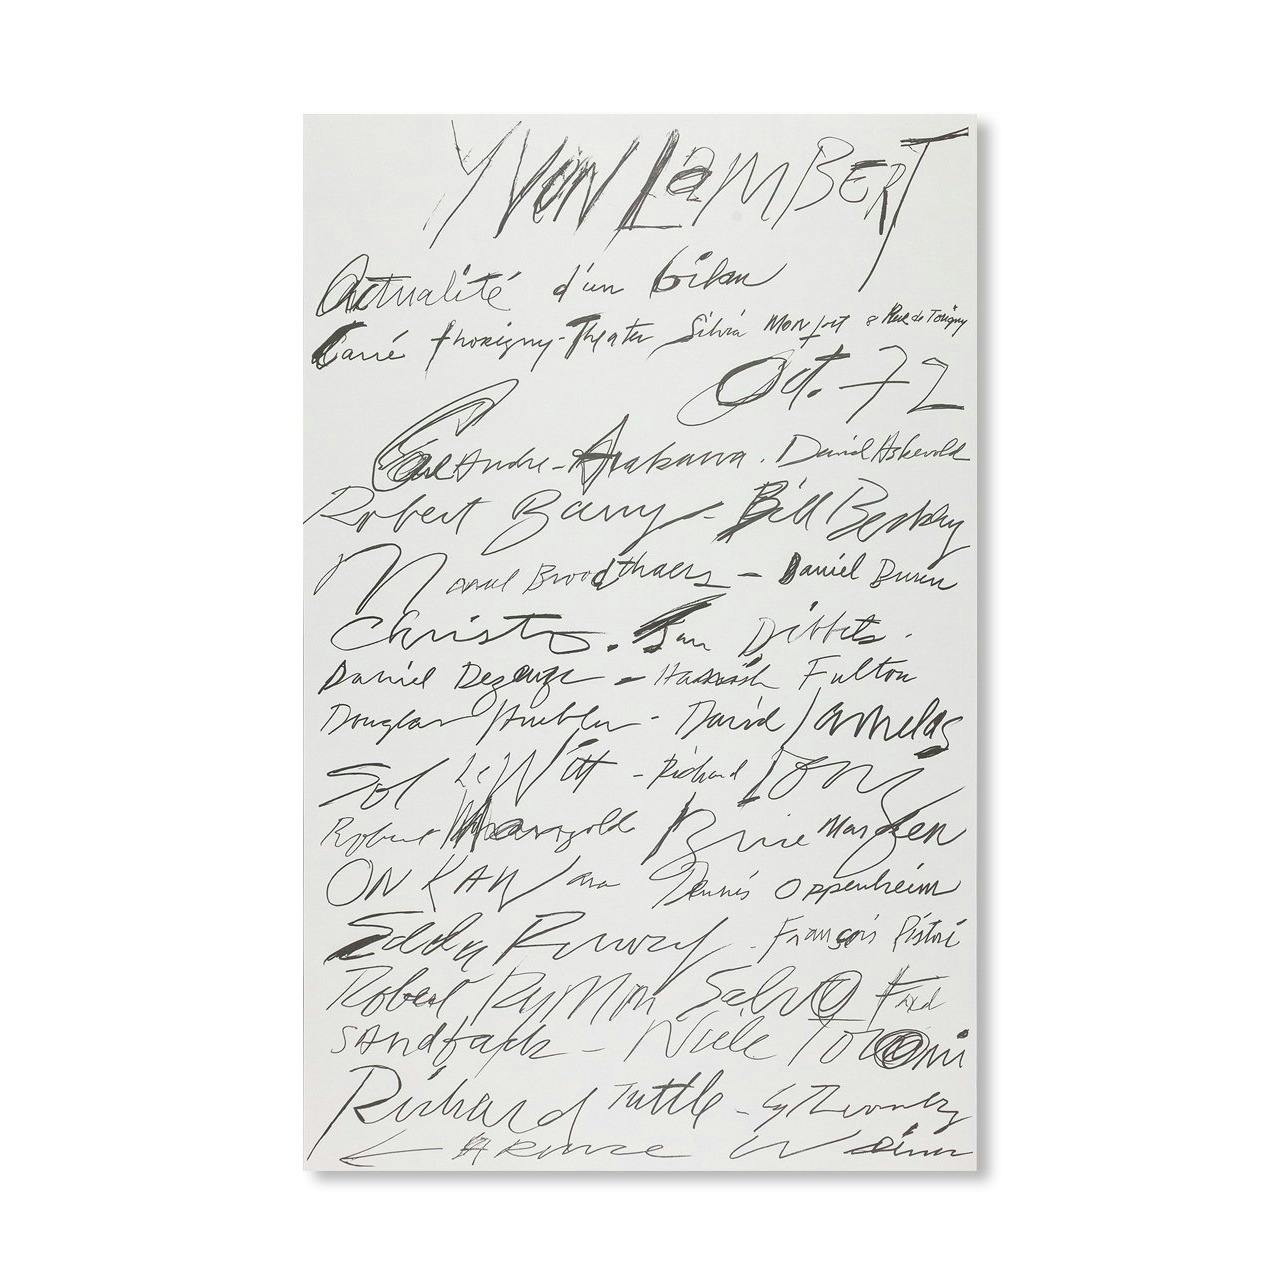 YVON LAMBERT
Actualité d'un bilan
Carré Thorigny-Theater Silvia Monfort 8 Rue de Torigny
Oct. 72
Carl Andre - Arakawa . David Askevold
Robert Barry - Bill Beckley
Marcel Broodthaers - Daniel Buren
Christo . Jan Dibbets .
Daniel Dezeuze - Hamish Fulton
Douglas Huebler - David Lamelas
Sol LeWitt - Richard Long
Robert Mangold Brice Marden
ON KAWara Dennis Oppenheim
François Ristori
Robert Ryman Salvo Fred
SANdback - Niele Toroni
Richard Tuttle - Cy Twombly
LAWRENCE Weiner